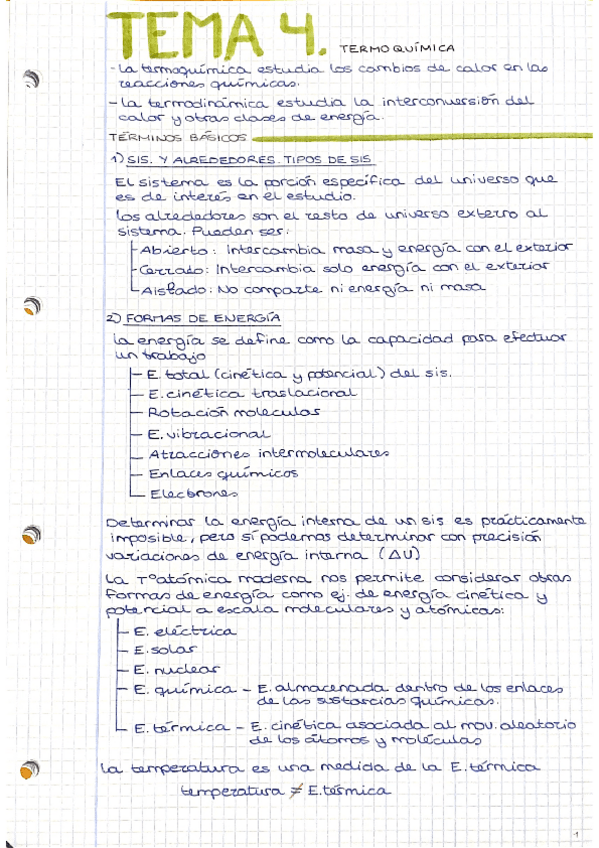 TEMA 4. TERMOQUÍMICA
-La termoquímica estudia los cambios de calor en las
reacciones químicas.
-La termodinámica estudia la interconversión del
calor y otras clases de energía.
TÉRMINOS BÁSICOS
1) SIS. Y ALREDEDORES. TIPOS DE SIS
El sistema es la porción específica del universo que
es de interés en el estudio.
Los alrededores son el resto de universo externo al
sistema. Pueden ser:
Abierto: intercambia masa y energía con el exterior
Cerrado: Intercambia solo energía con el exterior
Aislado: No comparte ni energía ni masa
2) FORMAS DE ENERGÍA
La energía se define como la capacidad para efectuar
un trabajo
E. total (cinética y potencial) del sis.
E. cinética traslacional
Rotación moleculas
E. vibracional
Atracciones intermoleculares
Enlaces químicos
Electrones
Determinar la energía interna de un sis es prácticamente
imposible, pero sí podemos determinar con precisión
variaciones de energía interna (ΔU)
La Tº atómica moderna nos permite considerar otras
formas de energía como ej. de energía cinética y
potencial a escala moleculares y atómicas:
E. eléctrica
E. solar
E. nuclear
E. química - E. almacenada dentro de los enlaces
de las sustancias químicas.
E. térmica - E. cinética asociada al mov. aleatorio
de los átomos y moléculas
La temperatura es una medida de la E. térmica
temperatura ≠ E. térmica
1